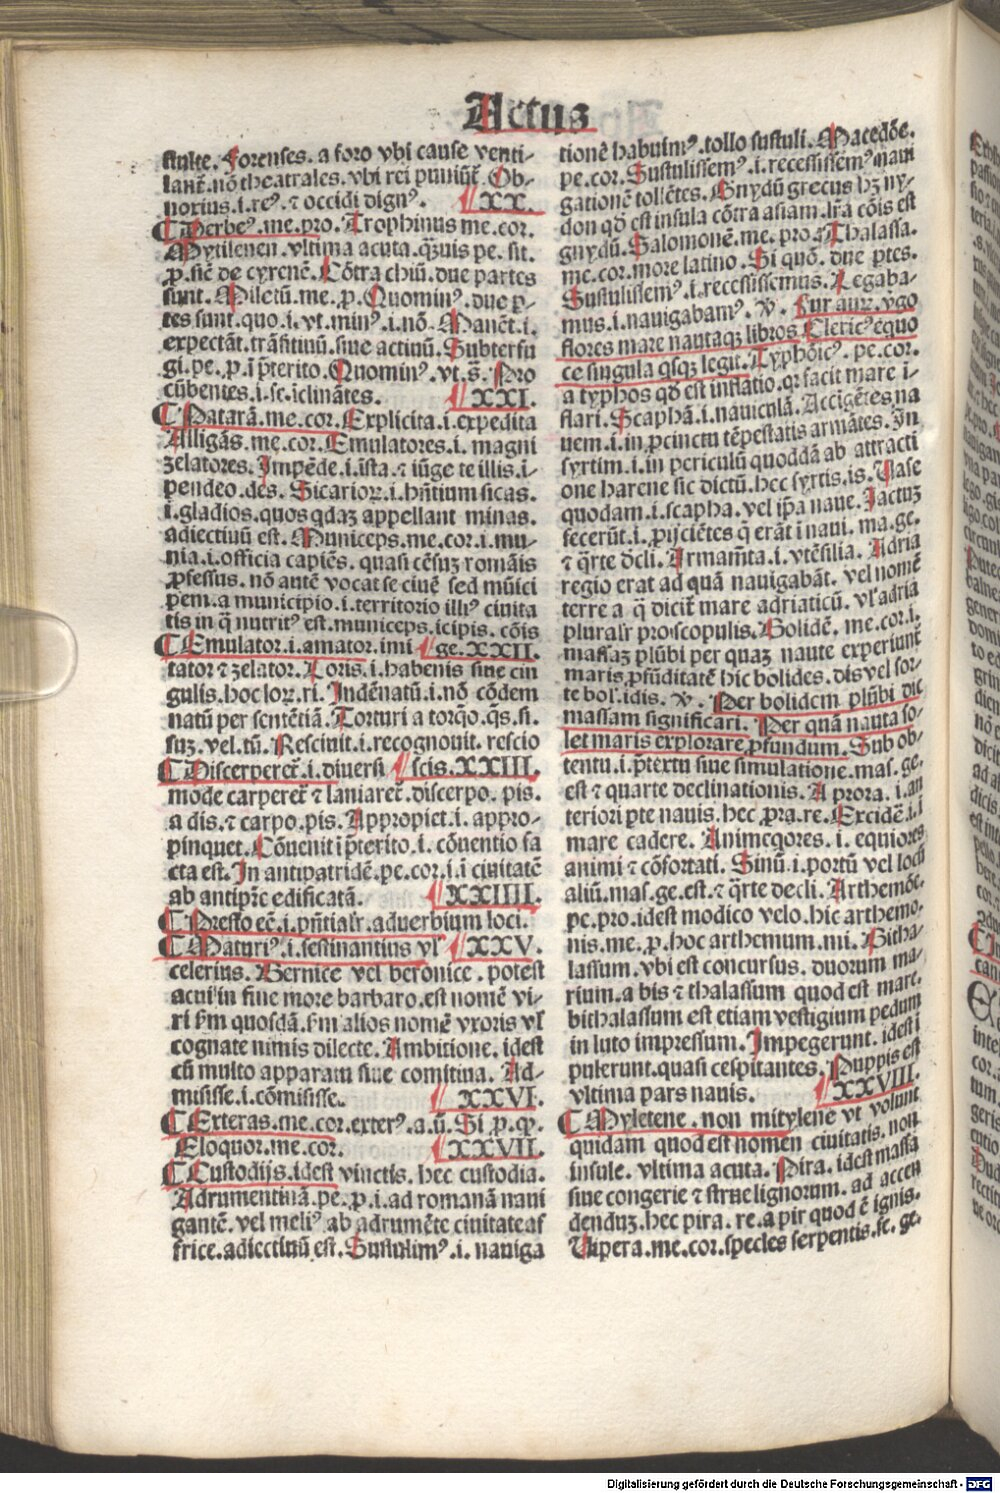 Actus
stulte. Forenses. a foro vbi cause venti-
lant᷑. nō theatrales. vbi rei puniūt᷑. Ob-
noxius. i. reꝰ. ⁊ occidi dignꝰ. XX.
¶ Derbeꝰ. me. pro. Trophinus me. cor.
Mytilenen. vltima acuta. q̄uis pe. sit.
ꝓ. sic̄ de cyrene. Cōtra chiū. due partes
sunt. Miletū. me. ꝓ. Quominꝰ. due ꝑ-
tes sunt. quo. i. vt. minꝰ. i. nō. Manēt. i.
expectāt. trāsitinū. siue actiuū. Subterfu
gi. pe. ꝓ. i p̄terito. Quominꝰ. vt. s̄. Pro
cūbentes. i. se. iclinātes. XXI.
¶ Patarā. me. cor. Explicita. i. expedita
Alligās. me. cor. Emulatores. i. magni
zelatores. Impēde. i. īsta. ⁊ iūge te illis. i-
pendeo. des. Sicarioꝝ. i. hn̄tium sicas.
i. gladios. quos qdaꝫ appellant minas.
adiectiuū est. Municeps. me. cor. i. mu-
nia. i. officia capiēs. quasi cēsuꝫ romāis
ꝓfessus. nō autē vocat se ciuē sed mūici
pem. a municipio. i. territorio illiꝰ ciuita
tis in q̄ nutritꝰ est. municeps. icipis. cōis
¶ Emulator. i. amator. imi ¶ ge. XXII.
tator ⁊ zelator. Loris. i. habenis siue cin
gulis. hoc loꝝ. ri. Indēnatū. i. nō cōdem
natū per sentētiā. Torturi a torq̄o. q̄s. si.
suꝫ. vel. tū. Resciuit. i. recognouit. rescio
¶ Discerperet᷑. i. diuersi ¶ scis. XXIII.
mode carperet᷑ ⁊ laniaret᷑. discerpo. pis.
a dis. ⁊ carpo. pis. Appropiet. i. appro-
pinquet. Cōuenit i p̄terito. i. cōuentio fa
cta est. In antipatridē. pe. cor. i. ī ciuitatē
ab antipr̄e edificatā. XXIIII.
¶ Presto eē. i. pn̄tialr̄. aduerbium loci.
¶ Maturiꝰ. i. festinantius vl' XXV.
celerius. Bernice vel beronice. potest
acui in fine more barbaro. est nomē vi-
ri ẜm quosdā. ẜm alios nomē vxoris vl'
cognate nimis dilecte. Ambitione. idest
cū multo apparatu siue comitiua. Ad-
misisse. i. cōmisisse. XXVI.
¶ Exteras. me. cor. exterꝰ. a. ū. Si ꝑ. qꝫ.
Eloquor. me. cor. XXVII.
¶ Custodijs. idest vinctis. hec custodia.
Adrumentinā. pe. ꝓ. i. ad romanā naui
gantē. vel meliꝰ ab adrumēte ciuitate af
frice. adiectiuū est. Sustulimꝰ. i. nauiga
tionē habuimꝰ. tollo sustuli. Macedōe.
pe. cor. Sustulissemꝰ. i. recessissemꝰ naui
gationē tollētes. Gnydū grecus hꝫ ny-
don qd̄ est insula cōtra asiam. lr̄a cōis est
gnydū. Salomonē. me. pro. Thalassa.
me. cor. more latino. Si quō. due ptes.
Sustulissemꝰ. i. recessissemus. Legaba-
mus. i. nauigabamꝰ. v. Fur auꝝ. vgo
flores mare nautaqꝫ libros Clericꝰ equo
ce singula qsqꝫ legit. Typhōicꝰ. pe. cor.
a typhos qd̄ est inflatio. qꝛ facit mare i-
flari. Scaphā. i. nauiculā. Accigētes na
uem. i. in ꝓcinctu tēpestatis armātes. In
syrtim. i. in periculū quoddā ab attracti
one harene sic dictū. hec syrtis. is. Vase
quodam. i. scapha. vel ip̄a naue. Jactuꝫ
fecerūt. i. ꝓijciētes q̄ erāt i naui. ma. ge.
⁊ q̄rte dcli. Armam̄ta. i. vtēsilia. Adria
regio erat ad quā nauigabāt. vel nomē
terre a q̄ dicit᷑ mare adriaticū. vl' adria
pluralr̄ pro scopulis. Bolidē. me. cor. i.
massaꝫ plūbi per quaꝫ naute experiunt᷑
maris ꝓfūditatē hic bolides. dis vel for-
te bol'. idis. v. Per bolidem plūbi dic
massam significari. Per quā nauta so-
let maris explorare ꝓfundum. Sub ob-
tentu. i. p̄textu siue simulatione. mas. ge.
est ⁊ quarte declinationis. A prora. i. an
teriori pte nauis. hec ꝓra. re. Excidē. i. i
mare cadere. Animeqores. i. equiores
animi ⁊ cōfortati. Sinū. i. portū vel locū
aliū. mas. ge. est. ⁊ q̄rte decli. Arthemōe.
pe. pro. idest modico velo. hic arthemo-
nis. me. ꝓ. hoc arthemum. mi. Bitha-
lassum. vbi est concursus. duorum ma-
rium. a bis ⁊ thalassum quod est mare.
bithalassum est etiam vestigium pedum
in luto impressum. Impegerunt. idest i
pulerunt. quasi cespitantes. Puppis est
vltima pars nauis. XXVIII.
¶ Myletene. non mitylene vt volunt
quidam quod est nomen ciuitatis. non
insule. vltima acuta. Pira. idest massa
siue congerie ⁊ strue lignorum. ad accen
denduꝫ. hec pira. re. a pir quod ē ignis.
Vipera. me. cor. species serpentis. fe. ge.
Digitalisierung gefördert durch die Deutsche Forschungsgemeinschaft - DFG